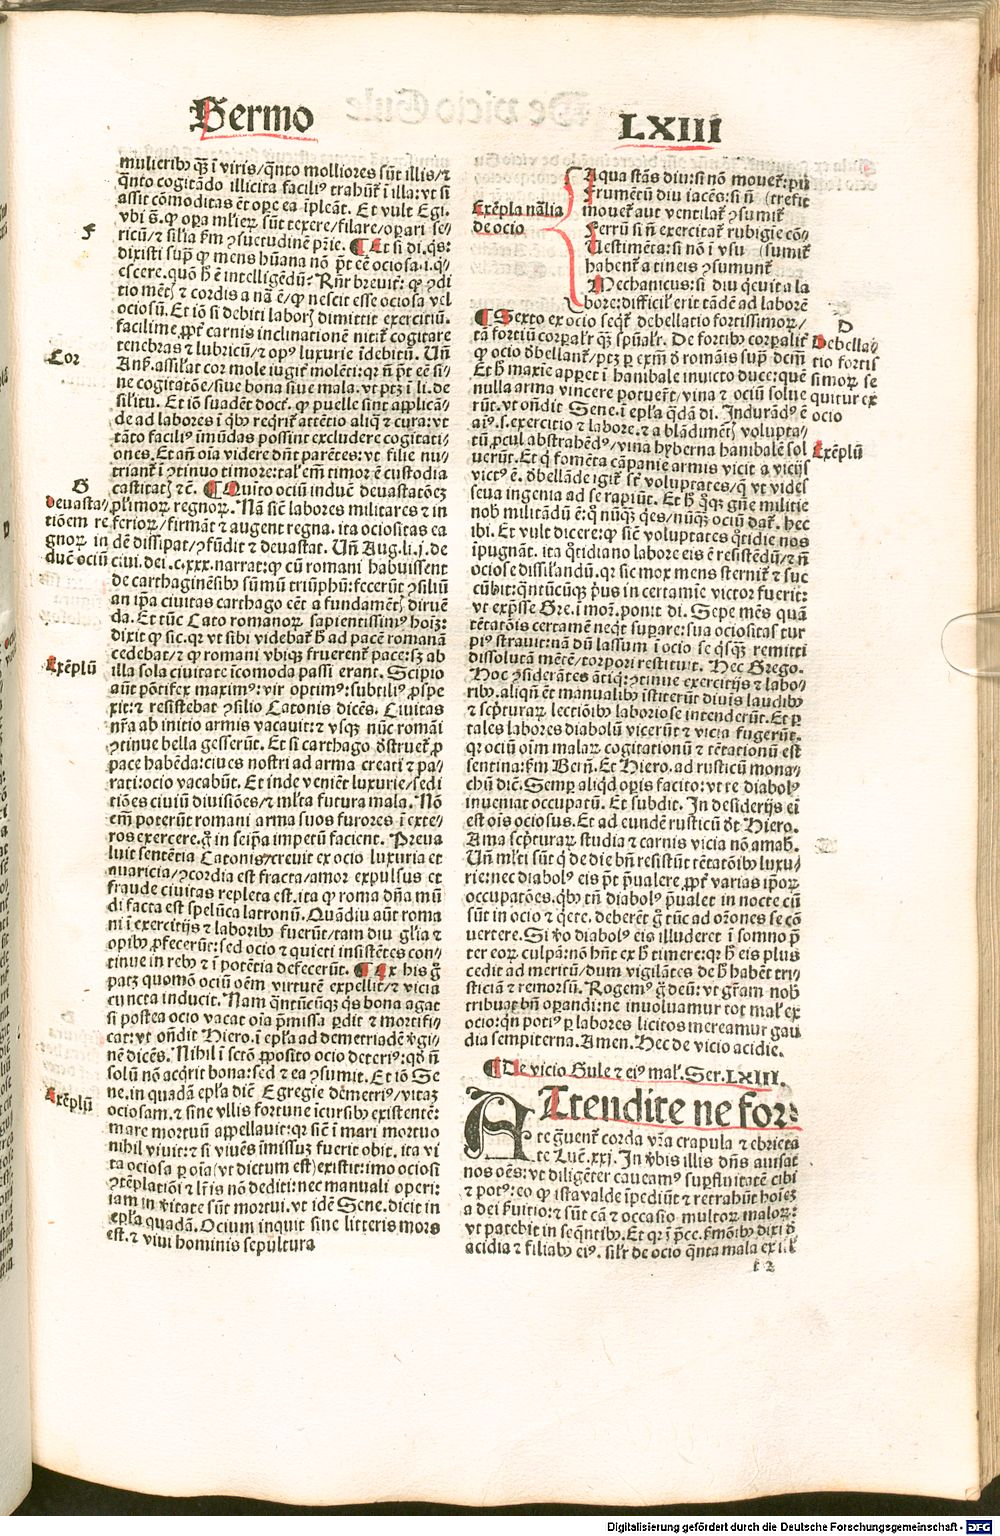 Sermo
LXIII
mulieribꝫ qꝫ ī viris/qn̄to molliores sūt illis/⁊
qn̄to cogitādo illicita faciliꝰ trahūt̄ ī illa: vt si
assit cōmoditas ēt oꝑe ea īpleāt. Et vult Egi.
vbi s̄. ꝙ oꝑa mľieꝝ sūt texere/filare/oꝑari se-
ricū/⁊ silia ẜm ↄsuetudinē pr̄ie. ¶ Et si di. qs:
dixisti supͣ ꝙ mens hūana nō pōt eē ociosa. i. q̇-
escere. quō h̄ ē intelligēdū? Rn̄r breuiť: ꝙ ↄdi
tio mētꝭ ⁊ cordis a nā ē/ꝙ nescit esse ociosa vel
ociosū. Et iō si debiti laborꝭ dimittit exercitiū.
facilime ꝓpť carnis inclinationē nitiť cogitare
tenebras ⁊ lubricū/⁊ opꝰ luxurie īdebitū. Un̄
Anẜ. assilat cor mole iugiť molēti: qꝛ nō pōt eē si-
ne cogitatōe/siue bona siue mala. vt ptꝫ ī li. de
silitu. Et iō suadēt doct. ꝙ puelle sint applicā-
de ad labores ī qͥbꝫ reqͥriť attētio aliqͣ ⁊ cura: vt
tāto faciliꝰ īmūdas possint excludere cogitati-
ones. Et an̄ oīa videre dn̄t parētes: vt filie nu-
trianť ī ↄtinuo timore: taľ em̄ timor ē custodia
castitatꝭ ⁊c̄. ¶ Quīto ociū inducit deuastatōeꝫ
ꝓlimoꝝ regnoꝝ. Nā sic̄ labores militares ⁊ in
ferioꝝ/firmāt ⁊ augent regna. ita ociositas ea
dē dissipat/ↄfūdit ⁊ deuastat. Un̄ Aug. li. j. de
ciui. dei. c. xxx. narrat: ꝙ cū romani habuissent
de carthaginēsibꝫ sūmū triūphū: fecerūt ↄsiliū
an ip̄a ciuitas carthago eēt a fundamētꝭ diruē
da. Et tūc Cato romanoꝝ sapientissimꝰ hoīꝫ:
dixit ꝙ sic. qꝛ vt sibi videbať h̄ ad pacē romanā
cedebat/⁊ ꝙ romani vbiqꝫ fruerenť pace: sꝫ ab
illa sola ciuitate īcomoda passi erant. Scipio
aūt pōtifex maximꝰ: vir optimꝰ: subtiliꝰ ꝓspe
xit: ⁊ resistebat ↄsilio Catonis dicēs. Ciuitas
nr̄a ab initio armis vacauit: ⁊ vsqꝫ nūc romāi
ↄtinue bella gesserūt. Et si carthago dͤstrueť ꝓ
pace habēda: ciues nostri ad arma creati ⁊ pa-
rati: ocio vacabūt. Et inde veniēt luxurie/sedi
tiōes ciuiū diuisiōes/⁊ mľta futura mala. Nō
em̄ poterūt romani arma suos furores ī exte-
ros exercere. gͦ in seip̄a impetū facient. Preua
luit sentētia Catonis: creuit ex ocio luxuria et
auaricia/ↄcordia est fracta/amor expulsus et
fraude ciuitas repleta est. ita ꝙ roma dn̄a mū
di facta est spelūca latronū. Quādiu aūt roma
ni ī exercitijs ⁊ laboribꝫ fuerūt/tam diu gl̄ia ⁊
opibꝫ ꝓfecerūt: sed ocio ⁊ quieti insistētes con-
tinue in rebꝫ ⁊ ī potētia defecerūt. ¶ Ex his gͦ
patꝫ quomō ociū oēm virtutē expellit/⁊ vicia
cūncta inducit. Nam qn̄tūcūqꝫ qͥs bona agat
si postea ocio vacat oīa p̄missa ꝑdit ⁊ mortifi-
cat: vt on̄dit Hiero. ī epľa ad demetriadē vͥgi-
nē dicēs. Nihil ī sctō ꝓposito ocio deteriꝰ: qd̄ nō
solū nō acqͥrit bona: sed ⁊ ea ↄsumit. Et iō Se
ne. in quadā epľa diē Egregie demetriꝰ/vitaꝫ
ociosam. ⁊ sine vllis fortune īcursibꝫ existentē:
mare mortuū appellauit: qꝛ sic̄ ī mari mortuo
nihil viuit: ⁊ si viuēs īmissuꝫ fuerit obit. ita vi
ta ociosa ꝑ oīa (vt dictum est) existit: imo ociosi
ↄtēplatiōi ⁊ lr̄is nō dediti: nec manuali operi:
iam in vͥitate sūt mortui. vt idē Sene. dicit in
epľa quadā. Ocium inquit sine litteris mors
est. ⁊ viui hominis sepultura
F
Cor
G
deuasta-
tiōem re
gnoꝝ in
ducit ociū
Exēplū
Exēplū
Exēpla nālia
de ocio
Aqua stās diu: si nō moueť: pu
Frumētū diu iacēs: si nō (trefit
moueť aut ventilať ↄsumiť
Ferrū si nō exercitať rubigie cō-
Uestimēta: si nō ī vsu (sumiť
habenť a tineis ↄsumunť
Mechanicus: si diu qͥeuit a la
bore: difficiľ erit tādē ad laborē
¶ Sexto ex ocio seqͥť debellatio fortissimoꝝ/
tā fortiū corꝑalr̄ qꝫ spūalr̄. De fortibꝫ corꝑaliť
ꝙ ocio dͤbellanť/ptꝫ ꝑ exm̄ dͤ romāis supͣ dcm̄
Et h̄ maxie apꝑet ī hanibale inuicto duce: quē
nulla arma vincere potuerūt/vina ⁊ ociū solue
rūt. vt on̄dit Sene. ī epľa qͣdā di. Indurādꝰ ē
aīꝰ. s. exercitio ⁊ labore. ⁊ a blādimētꝭ volupta-
tū ꝓcul abstrahēdꝰ/vina hyberna hanibalē sol
uerūt. Et qͥ fomēta cāpanie armis vicit a vicijs
victꝰ ē. dͤbellāde igiť sūt voluptates/qͥ vt vides
seua ingenia ad se rapiūt. Et h̄ qͥqꝫ gn̄e militie
nob̄ militādū ē: qͥ nūqͣꝫ qͥes/nūqͣꝫ ociū dať. hec
ibi. Et vult dicere: ꝙ sic̄ voluptates qͦtidie nos
īpugnāt. ita qͦtidiano labore eis ē resistēdū/⁊ nō
ociose dissiľandū. qꝛ sic mox mens sterniť ⁊ suc
cūbit: qͣntūcūqꝫ pͥus in certamie victor fuerit:
vt exp̄sse Gre. ī moral̄. ponit di. Sepe mēs quā
tētatōis certamē neqͥt suꝑare: sua ociositas tur
piꝰ strauit: nā dū lassum ī ocio se qͥsqꝫ remitti
dissolutā mētē/torpori restituit. Hec Grego.
Hoc ↄsiderātes ātiqͥ: ↄtinue exercitijs ⁊ labo-
ribꝫ. aliqn̄ ēt manualibꝫ īstiterūt diuīs laudibꝫ
⁊ scpͥturaꝝ lectiōibꝫ laboriose intenderūt. Et ꝑ
tales labores diabolū vicerūt ⁊ vicia fugerūt.
qꝛ ociū oīm malaꝝ cogitationū ⁊ tētationū est
sentina: ẜm Bern̄. Et Hiero. ad rusticū mona-
chū dic̄. Semꝑ aliqͥd oꝑis facito: vt te diabolꝰ
inueniat occupatū. Et subdit. In desiderijs eī
est oīs ociosus. Et ad eundē rusticū dͭt Hiero.
Ama scpͥturaꝝ studia ⁊ carnis vicia nō amab̄.
Un̄ mľti sūt qͥ de die bn̄ resistūt tētatōibꝫ luxu-
rie: nec diabolꝰ eis pōt p̄ualere ꝓpť varias ip̄oꝝ
occupatōes. qͥbꝫ tn̄ diabolꝰ p̄ualet in nocte cū
sūt in ocio ⁊ qͥete. deberēt gͦ tūc ad orōnes se cō
uertere. Si vͦo diabolꝰ eis illuderet ī somno p̄
ter eoꝝ culpā: nō hn̄t ex h̄ timere: qꝛ h̄ eis plus
cedit ad meritū/dum vigilātes de h̄ habēt tri-
sticiā ⁊ remorsū. Rogemꝰ gͦ deū: vt gr̄am nob̄
tribuat bn̄ oꝑandi: ne inuoluamur tot maľ ex
ocio: qͥn potiꝰ ꝑ labores licitos mereamur gau
dia sempiterna. Amen. Hec de vicio acidie.
D
Debella-
tio fortis
simoꝝ se
quitur ex
ocio
Exēplū
¶ De vicio Gule ⁊ eiꝰ maľ. Ser. LXIII.
ATtendite ne for-
te gͣuenť corda vr̄a crapula ⁊ ebrieta
te Luč. xxj. In vͥbis illis dn̄s auisat
nos oēs: vt diligēter caueamꝰ suꝑfluitatē cibi
⁊ potꝰ: eo ꝙ ista valde īpediūt ⁊ retrahūt hoīeꝫ
a dei ẜuitio: ⁊ sūt cā ⁊ occasio multoꝝ maloꝝ:
vt patebit in seqn̄tibꝫ. Et qꝛ ī p̄ce. ẜmōibꝫ dixi dͤ
acidia ⁊ filiabꝫ eiꝰ. siľr de ocio qͥnta mala ex il̄
t 2
Digitalisierung gefördert durch die Deutsche Forschungsgemeinschaft - DFG